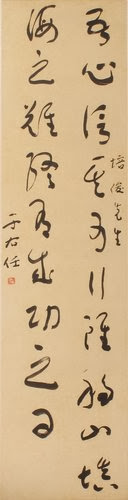 吾心信其可行雖移山填
海之難終有成功之日
培俊先生
于右任